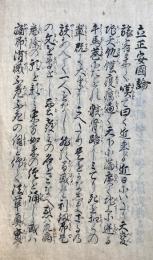 立正安國論
旅客来りて嘆て曰近年より近日に至るまで天変
地夭飢饉疫癘遍く天下に満広く地上に迸る
牛馬巷に斃れ骸骨路に充り死を招くの
輩既に大半に超
族敢て一人もなし然る間或は利剣即是
の文を専にして西土教主の名を唱或は衆
病悉除の願を恃て東方如来の経を誦し或は
病即消滅不老不死の詞を仰て法華真実